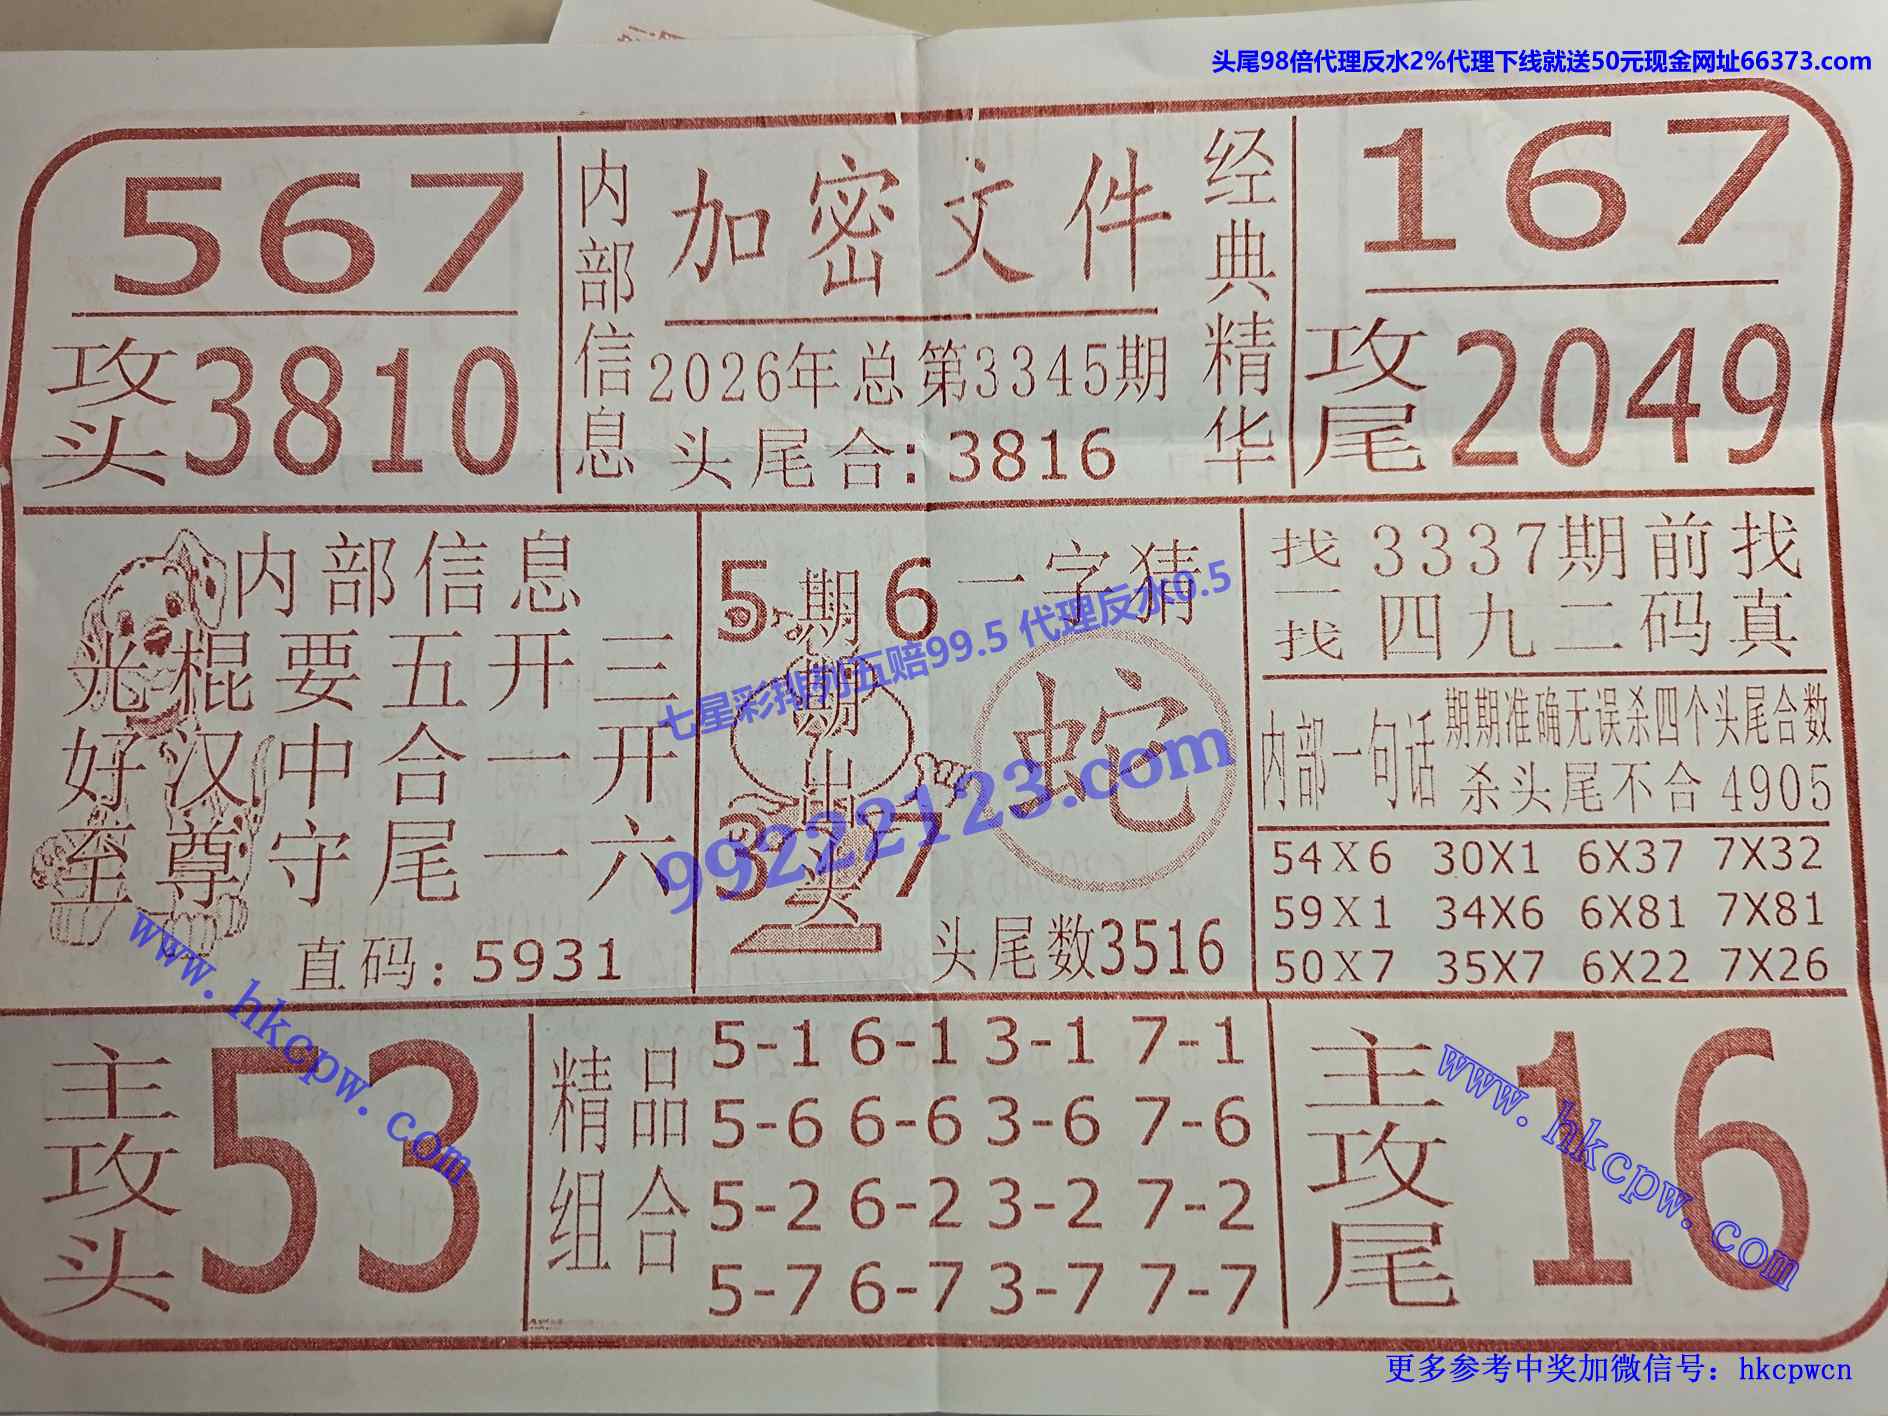 头尾98倍代理反水2%代理下线就送50元现金网址66373.com
567
攻头3810
内部信息
加密文件
2026年总第3345期
头尾合:3816
经典精华
167
攻尾2049
内部信息
光棍要五开三
好汉中合一开
至尊守尾一六
直码:5931
5 6
期期出头
3 7
一字猜
蛇
头尾数3516
七星彩排列五赔99.5 代理反水0.5
99222123.com
找一找
3337期前找
四九二码真
内部一句话
期期准确无误杀四个头尾合数
杀头尾不合4905
54X6 30X1 6X37 7X32
59X1 34X6 6X81 7X81
50X7 35X7 6X22 7X26
主攻头
53
精品组合
5-1 6-1 3-1 7-1
5-6 6-6 3-6 7-6
5-2 6-2 3-2 7-2
5-7 6-7 3-7 7-7
主攻尾
16
www.hkcpw.com
www.hkcpw.com
更多参考中奖加微信号：hkcpwcn